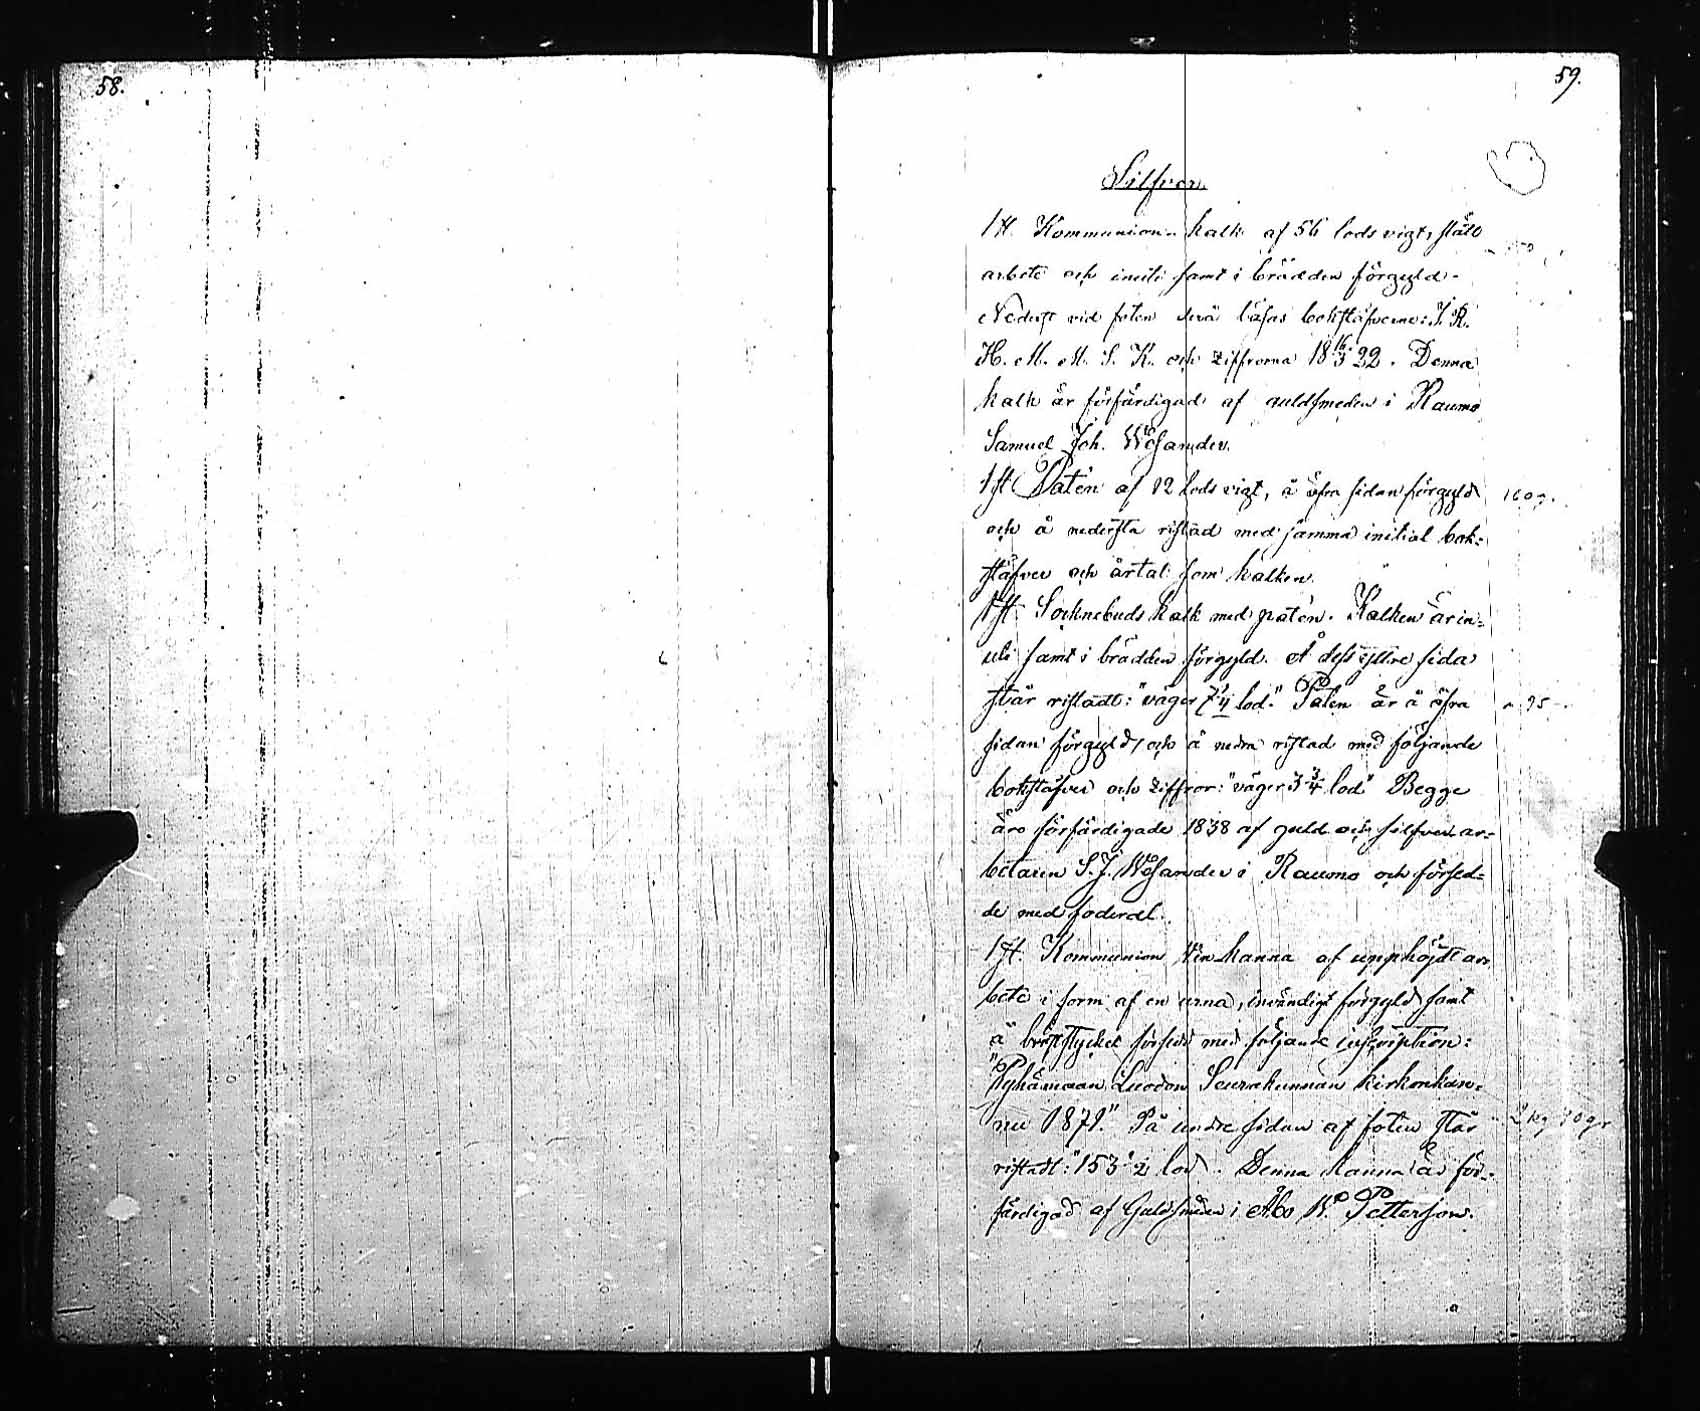 58.
59.
Silfver.
1 st. Kommunion kalk af 56 lods vigt, slätt
arbete och inuti samt i brädden förgyld.
Nederst vid foten läsas bokstäfverne: J. R.
H. M. M. S. K. och ziffrorna 18 16/3 22. Denna
kalk är förfärdigad af guldsmeden i Raumo
Samuel Joh.
1 st Patén af 12 lods vigt, å öfra sidan förgyld
160 g.
och å nedersta ristad med samma initial bok-
stäfver och årtal som kalken.
1 st. Socknebuds kalk med patén. Kalken är in-
uti samt i brädden förgyld. Å dess yttre sida
står ristadt: "väger 7 1/4 lod." Patén är å öfra
95
sidan förgyld, och å nedra ristad med följande
bokstäfver och ziffror: "väger 3 3/4 lod" Begge
äro förfärdigade 1838 af guld och silfver ar-
betaren S. J. i Raumo och försed-
de med foderal.
1 st. Kommunion vin kanna af upphöjdt ar-
bete i form af en urna, invändigt förgyld samt
å bröststycket försedd med följande inscription:
"Pyhämaan Luodon Seurakunnan kirkonkan-
nu 1879." På undre sidan af foten står
2 kg 30 gr
ristadt: "153 1/2 lod. Denna kanna är för-
färdigad af Guldsmeden i Åbo W. Petterson.